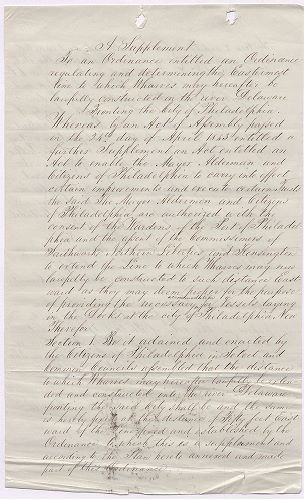 A Supplement
To an Ordinance entitled an Ordinance
regulating and determining the Easternmost
line to which Wharves may hereafter be
lawfully constructed in the river Delaware
fronting the City of Philadelphia
Whereas by an Act of Assembly passed
on the 24th day of April 1843 entitled a
further Supplement an Act entitled an
Act to enable the Mayor Alderman and
Citizens of Philadelphia to carry into effect
certain improvements and execute certain trusts
the said The Mayor Alderman and Citizens
of Philadelphia are authorized with the
consent of the Wardens of the Port of Philadel
phia and the assent of the Commissioners of
Southwark, Northern Liberties and Kensington
to extend the Line to which Wharves may now
lawfully be constructed to such distance East
ward as they may deem proper for the purpose
of providing the necessary for Vessels laying
in the Docks at the city of Philadelphia, Now
Therefor
Section 1. Be it ordained and enacted by
the Citizens of Philadelphia in Select and
Common Councils assembled that the distance
to which Wharves may hereafter lawfully be exten
ded and constructed into the river Delaware
fronting the said City shall be and the same
is hereby fixed at the distance of fifty feet East
ward of the and established by the
Ordinance to which this is a supplement and
according to the Plan hereto annexed and made
part of this Ordinance